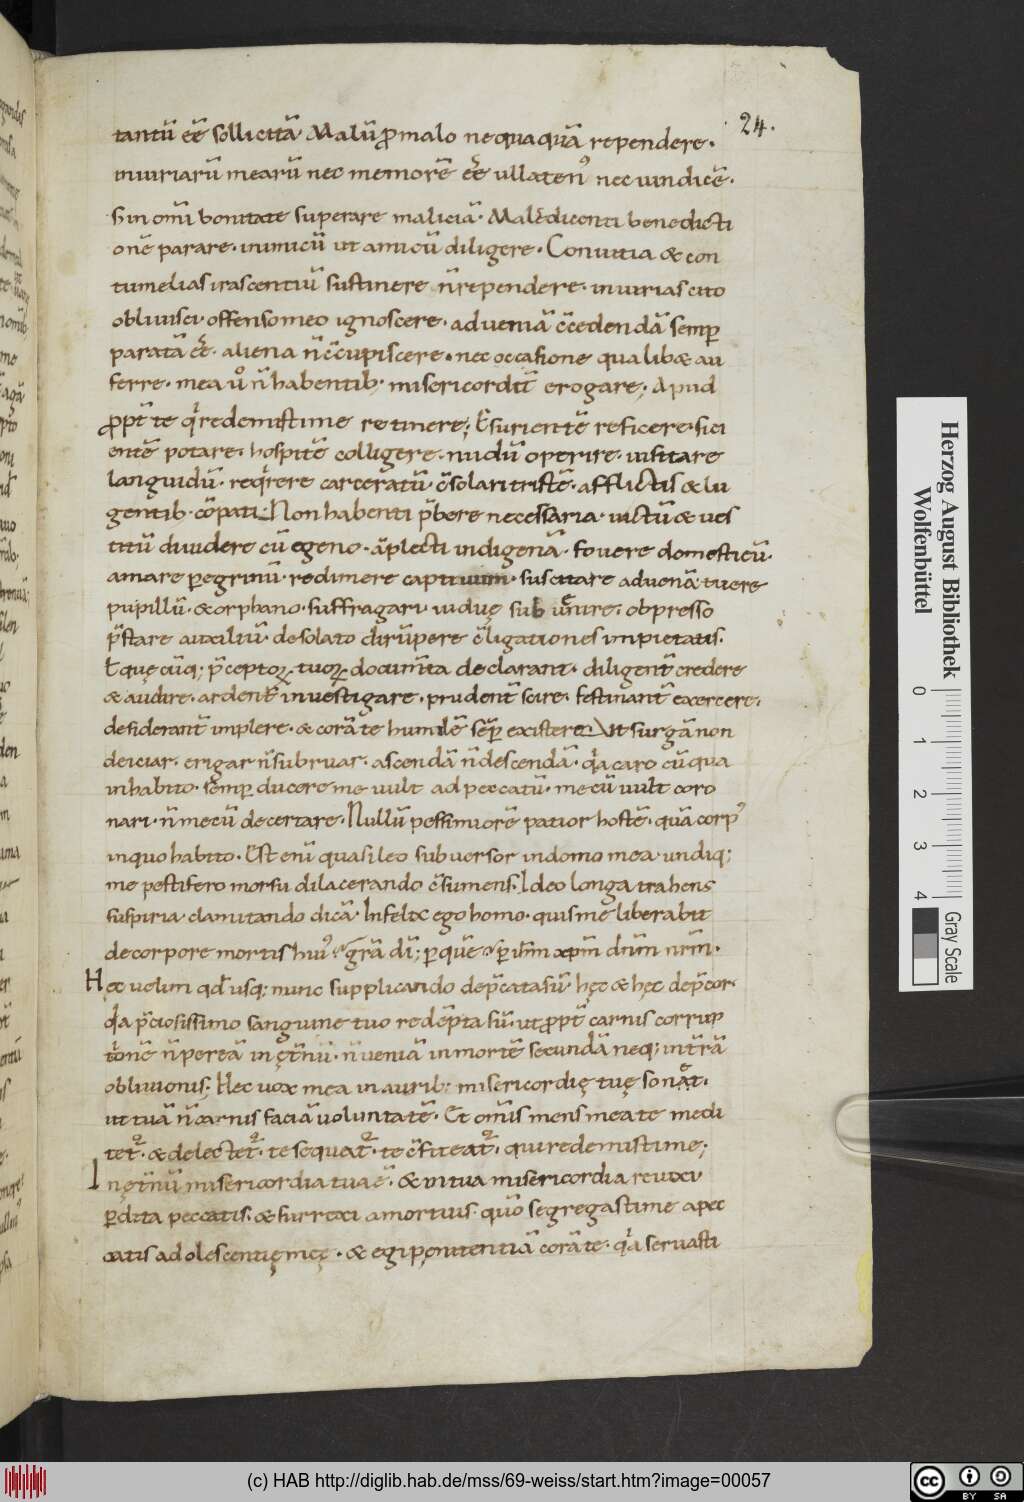 24.
tantū eē sollicitā. Malū ꝓ malo nequaquā rependere.
iniuriarū mearū nec memorē eē ullaten᾽ nec uindicē.
Sin omī bonitate superare maliciā. Maledicenti benedicti
onē parare. inimicū ut amicū diligere. Conuitia & con
tumelias irascentiū sustinere n̄ rependere. iniurias cito
obliuisci. offenso meo ignoscere. ad ueniā c̄cedendā semꝑ
paratā eē. aliena n̄ c̄cupiscere. nec occasione qualib& au
ferre. mea ů n̄ habentib; misericordit̄ erogare; Apud
ꝓpt̄ te q̇ redemisti me retinere; Esurientē reficere. siti
entē potare. hospitē colligere. nudū operire. uisitare
languidū. req̇rere carceratū. c̄solari tristē. afflictis & lu
gentib. cōpati. Non habenti p̄bere necessaria. uictū & ues
titū diuidere cū egeno. āplecti indigenā. fouere domesticū.
amare ꝑegrinū. redimere captiuum. suscitare aduenā. tuere
pupillū. & orphano. suffragari uiduę subuenire. obpresso
p̄stare auxiliū. desolato dirūpere c̄ligationes impietatis.
Et quę cūq; p̄ceptoꝝ tuoꝝ documīta declarant. diligent̄ credere
& audire. ardent̄ inuestigare. prudent̄ scire. festinant̄ exercere.
desiderant̄ implere. & corā te humilē semꝑ existere. Ut surgā non
deiciar. erigar n̄ subruar. ascendā n̄ descendā. q̇a caro cū qua
inhabito. semꝑ ducere me uult ad peccatū. mecū uult coro
nari. n̄ mecū decertare. Nullū pessimiorē patior hostē. quā corp᾽
in quo habito. Est enī quasi leo subuersor in domo mea. undiq;
me pestifero morsu dilacerando c̄sumens. Ideo longa trahens
suspiria. clamitando dicā. Infelix ego homo. quis me liberabit
de corpore mortis hui᾽. grā dī; ꝑ quē. ꝑ ihm xpm dnm nrm.
Hęc uolui qd̄ usq; nunc supplicando dep̄cata sū. hęc & hęc dep̄cor.
q̇a p̄ciosissimo sanguine tuo redēpta sū. ut ꝓpt̄ carnis corrup
tionē n̄ pereā in ęt̄nū. n̄ ueniā in mortē secundā neq; in t̄rā
obliuionis; Hec uox mea in aurib; misericordię tuę sonet.
ut tuā n̄ carnis faciā uoluntatē. Et omīs mens mea te medi
tet̄. & delectet̄. te sequat̄. te c̄fiteat̄. qui redemisti me;
In ęt̄nū misericordia tua ē. & in tua misericordia reuixi
ꝑdita peccatis. & surrexi a mortuis. quō segregasti me a pec
catis adolescentię meę. & egi pęnitentiā corā te. q̇a seruasti
Herzog August Bibliothek
Wolfenbüttel
0 1 2 3 4
Gray Scale
(c) HAB http://diglib.hab.de/mss/69-weiss/start.htm?image=00057
cc BY SA